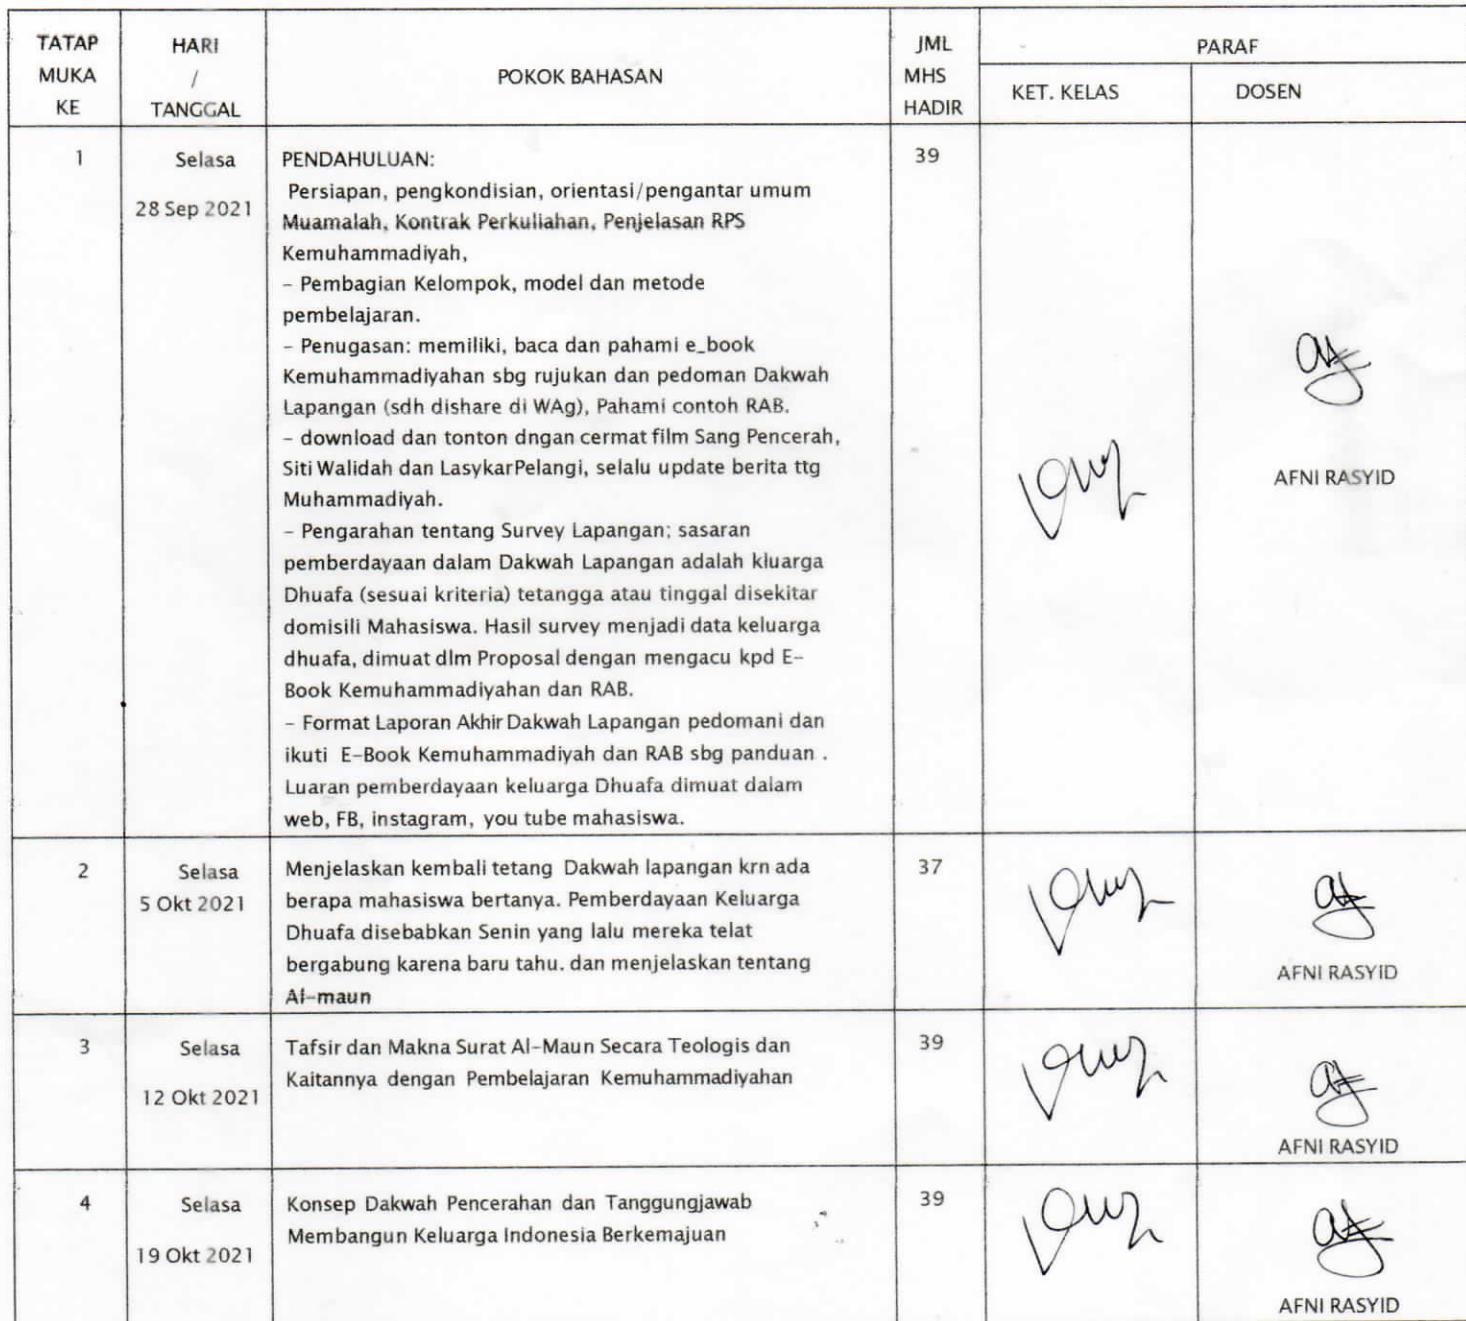 TATAP MUKA KE
HARI / TANGGAL
POKOK BAHASAN
JML MHS HADIR
PARAF
KET. KELAS
DOSEN
1
Selasa
28 Sep 2021
PENDAHULUAN:
Persiapan, pengkondisian, orientasi/pengantar umum
Muamalah, Kontrak Perkuliahan, Penjelasan RPS
Kemuhammadiyah,
- Pembagian Kelompok, model dan metode
pembelajaran.
- Penugasan: memiliki, baca dan pahami e_book
Kemuhammadiyahan sbg rujukan dan pedoman Dakwah
Lapangan (sdh dishare di WAg), Pahami contoh RAB.
- download dan tonton dngan cermat film Sang Pencerah,
Siti Walidah dan LasykarPelangi, selalu update berita ttg
Muhammadiyah.
- Pengarahan tentang Survey Lapangan; sasaran
pemberdayaan dalam Dakwah Lapangan adalah kluarga
Dhuafa (sesuai kriteria) tetangga atau tinggal disekitar
domisili Mahasiswa. Hasil survey menjadi data keluarga
dhuafa, dimuat dlm Proposal dengan mengacu kpd E-
Book Kemuhammadiyahan dan RAB.
- Format Laporan Akhir Dakwah Lapangan pedomani dan
ikuti E-Book Kemuhammadiyah dan RAB sbg panduan .
Luaran pemberdayaan keluarga Dhuafa dimuat dalam
web, FB, instagram, you tube mahasiswa.
39
AFNI RASYID
2
Selasa
5 Okt 2021
Menjelaskan kembali tetang Dakwah lapangan krn ada
berapa mahasiswa bertanya. Pemberdayaan Keluarga
Dhuafa disebabkan Senin yang lalu mereka telat
bergabung karena baru tahu. dan menjelaskan tentang
Al-maun
37
AFNI RASYID
3
Selasa
12 Okt 2021
Tafsir dan Makna Surat Al-Maun Secara Teologis dan
Kaitannya dengan Pembelajaran Kemuhammadiyahan
39
AFNI RASYID
4
Selasa
19 Okt 2021
Konsep Dakwah Pencerahan dan Tanggungjawab
Membangun Keluarga Indonesia Berkemajuan
39
AFNI RASYID